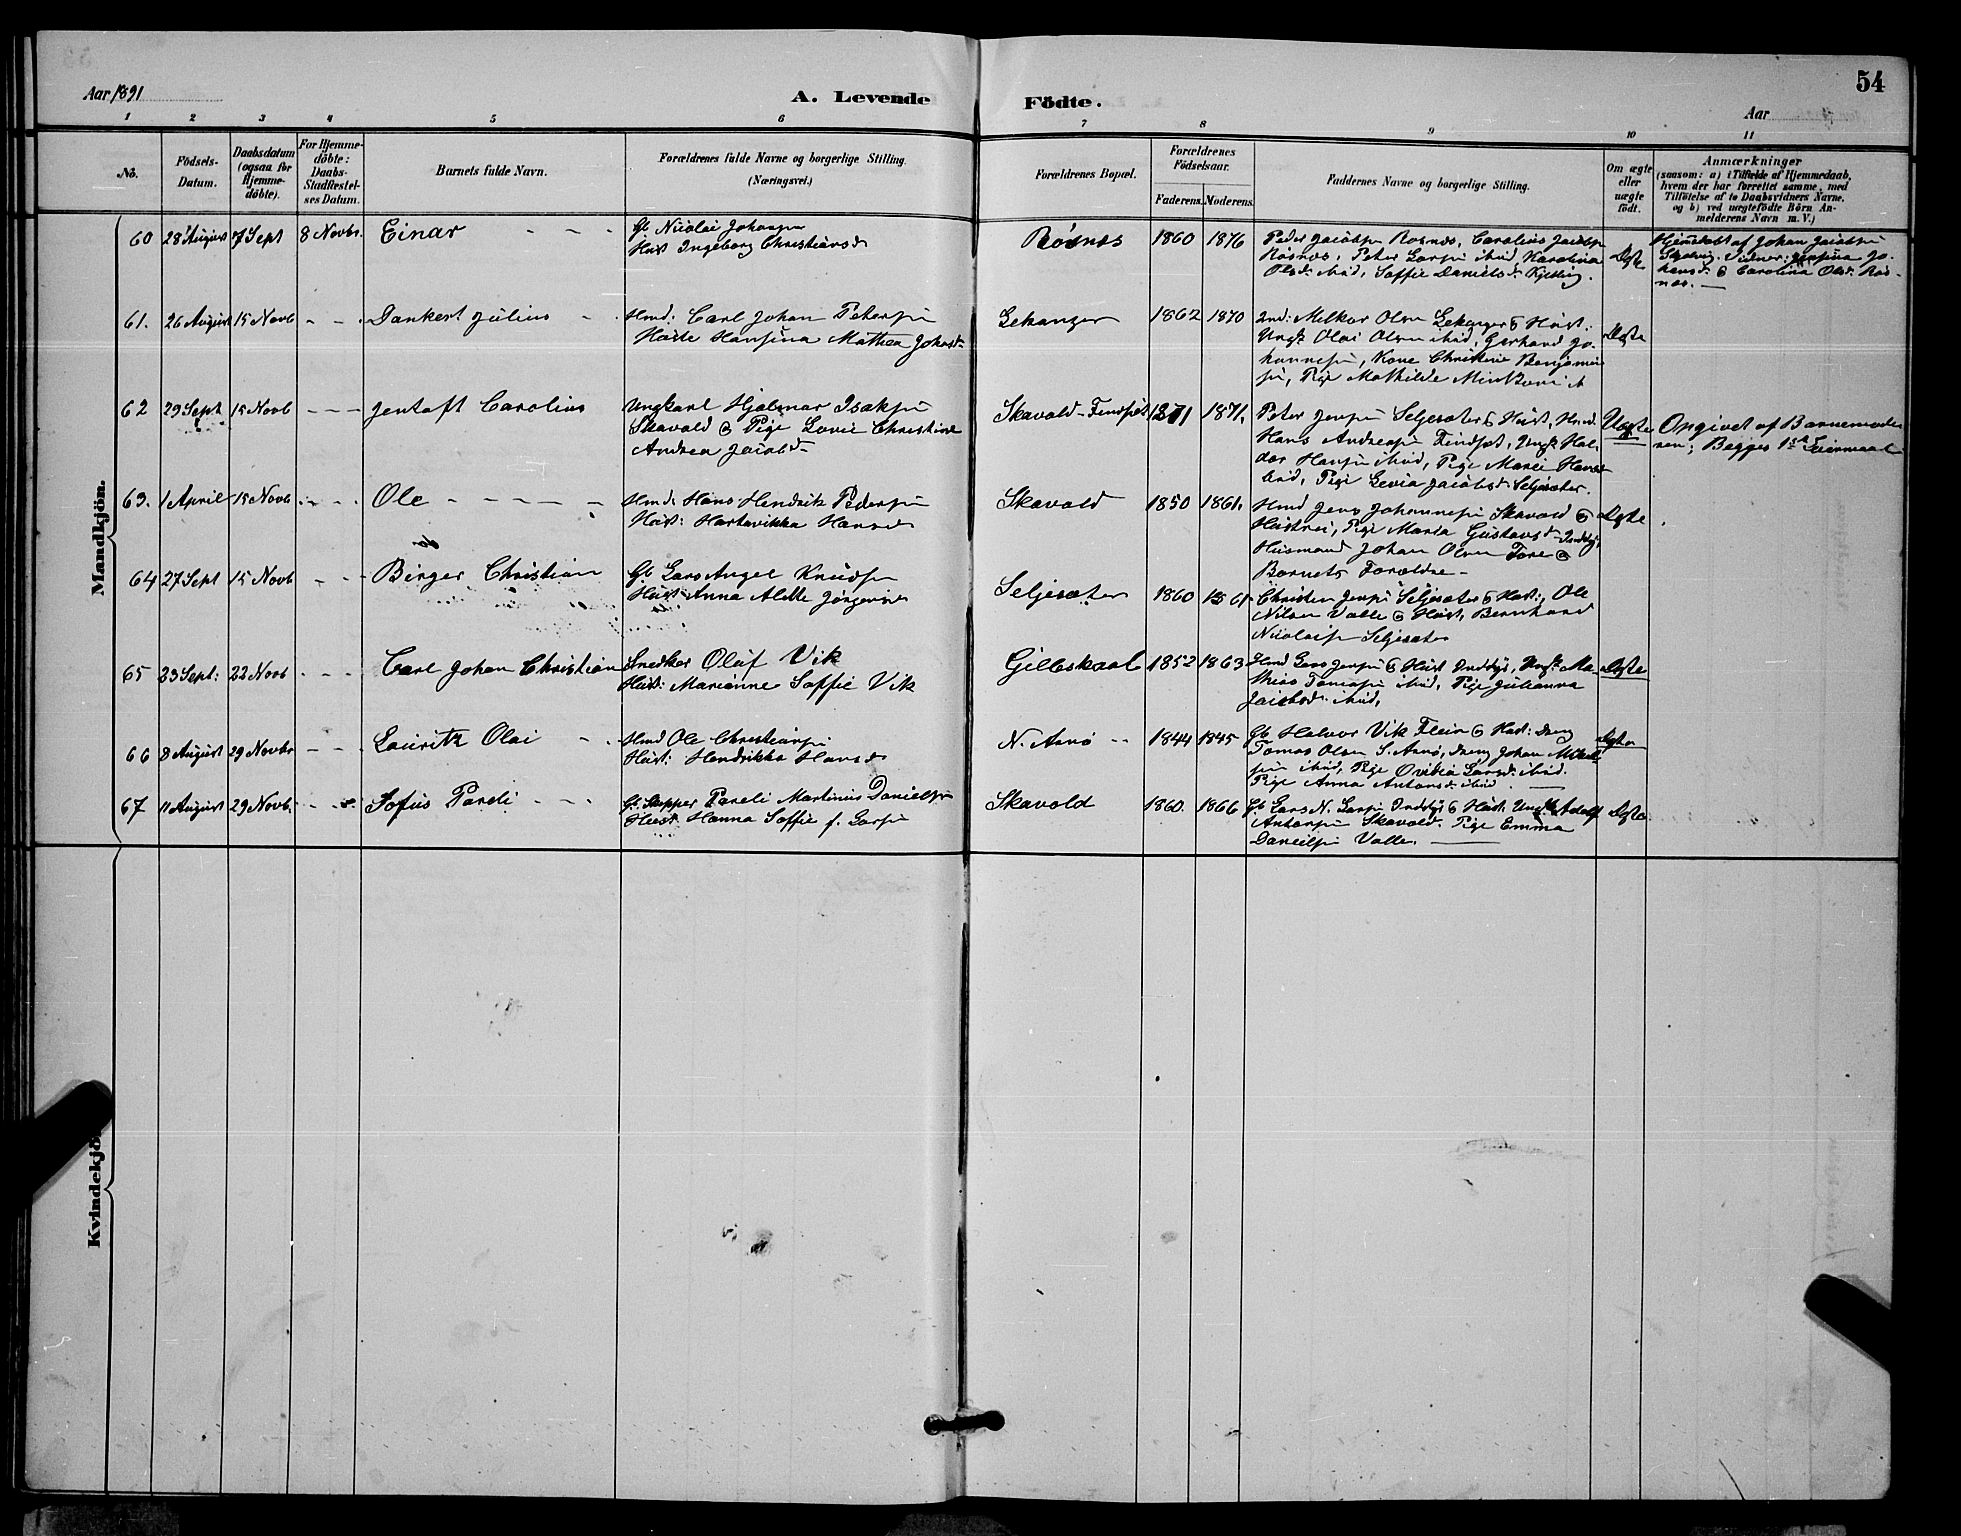 54
Aar 1891
A. Levende
Födte.
Aar
1 2 3 4 5 6 7 8 9 10 11
No.
Födsels-
Datum.
Daabsdatum
(ogsaa for
Hjemme-
döbte).
For Hjemme-
döbte:
Daabs-
Stadfæstel-
ses Datum.
Barnets fulde Navn.
Forældrenes fulde Navne og borgerlige Stilling.
(Næringsvei.)
Forældrenes Bopæl.
Forældrenes
Födselsaar.
Faderens. Moderens.
Faddernes Navne og borgerlige Stilling.
Om ægte
eller
uægte
födt.
Anmærkninger
(saasom: a) i Tilfælde af Hjemmedaab,
hvem der har forrettet samme, med
Tilföielse af to Daabsvidners Navne.
og b) ved uægtefödte Börn An-
melderens Navn m. V.)
Mandkjön.
60 28 August 7 Sept 8 Novbr. Einar
Gb. Nicolai Johansen
Hust Ingeborg Christiansd
Rösnes 1860 1876
Peder Jacobsen Rosnes, Carolius Jacobsen
Rösnes, Peter Larsen ibid, Karolina
Olsd. ibid, Soffie Danielsd. Kjelling.
Ægte
Hjemmedöbt af Johan Jacobsen
Vidner: Jensine Jo-
hansd. & Carolina Olsd. Rös-
nes.
61. 26 August 15 Novb Dankert Julius
Hmd: Carl Johan Petersen
Huste Hansina Mathea Johnsd
Lekanger 1862 1870
Ind: Melkor Olsen Lekanger & Hust:
Ungk Olai Olsen ibid, Gerhard Jo-
hannesen, Kone Christine Benjamin-
sen, Pige Mathilde
Ægte
62 29 Sept 15 Novb Jentoft Carolius
Ungkarl Hjalmar Isaksen
Skavold & Pige Lovise Christine
Andrea Jacobsd
Skavold - Findset 1871 1871.
Peter Jensen Seljesæter & Hust, Hmd
Hans Andreasen Findset, Ungk Hal-
dor Hansen ibid, Pige Marei Hansd
ibid, Pige Jacobsd. Seljesæter.
Uægte
Opgivet af Barnemode-
ren; Begges 1ste Leiermaal
63. 1 April 15 Novb Ole
Hmd: Hans Hendrik Pedersen
Hust: Hartvikka Hansd
Skavold 1850 1861.
Hmd Jens Johannesen Skavold &
Hustrui, Pige Maria Gustavsd Inddyr,
Husmand Johan Olsen Tore &
Barnets Forældre -
Ægte
64 27 Sept 15 Novb Birger Christian
Gb Lars Angel Knudsen
Hust Anna Alette Jörgensd
Seljesæter 1860 1861
Christen Jensen Seljesæter & Hust:, Ole
Nilsen Valle & Hust, Bernhard
Nicolaisen Seljesæter
65 23 Sept: 22 Novb Carl Johan Christian
Snedker Oluf Vik
Hust: Marianne Soffie Vik
Gilleskaal 1852 1863
Hmd Lars Jensen & Hust Inddyr, Ungk Ma-
thias Tomasen ibid, Pige Julianna
Jacobsd. ibid,
Ægte
66 8 August 29 Novbr Lauritz Olai
Hmd Ole Christiansen
Hust: Hendrikka Hansd
N. Arnö 1844 1845
Gb Halvor Vik Flein & Hust: Dreng
Tomas Olsen S. Arnö, Dreng Johan Mikal-
sen ibid, Pige Ovidia Larsd. ibid.
Pige Anna Antonsd ibid
Ægte
67 11 August 29 Novb. Sofus Pareli
Gb. Skipper Pareli Martinus Danielsen
Hust Hanna Soffie f. Larsen
Skavold 1860. 1866
Gb Lars N. Larsen Inddyr & Hust. Ungk Adolf
Antonsen Skavold. Pige Emma
Danielsen Valle.
Ægte
Kvindekjön.